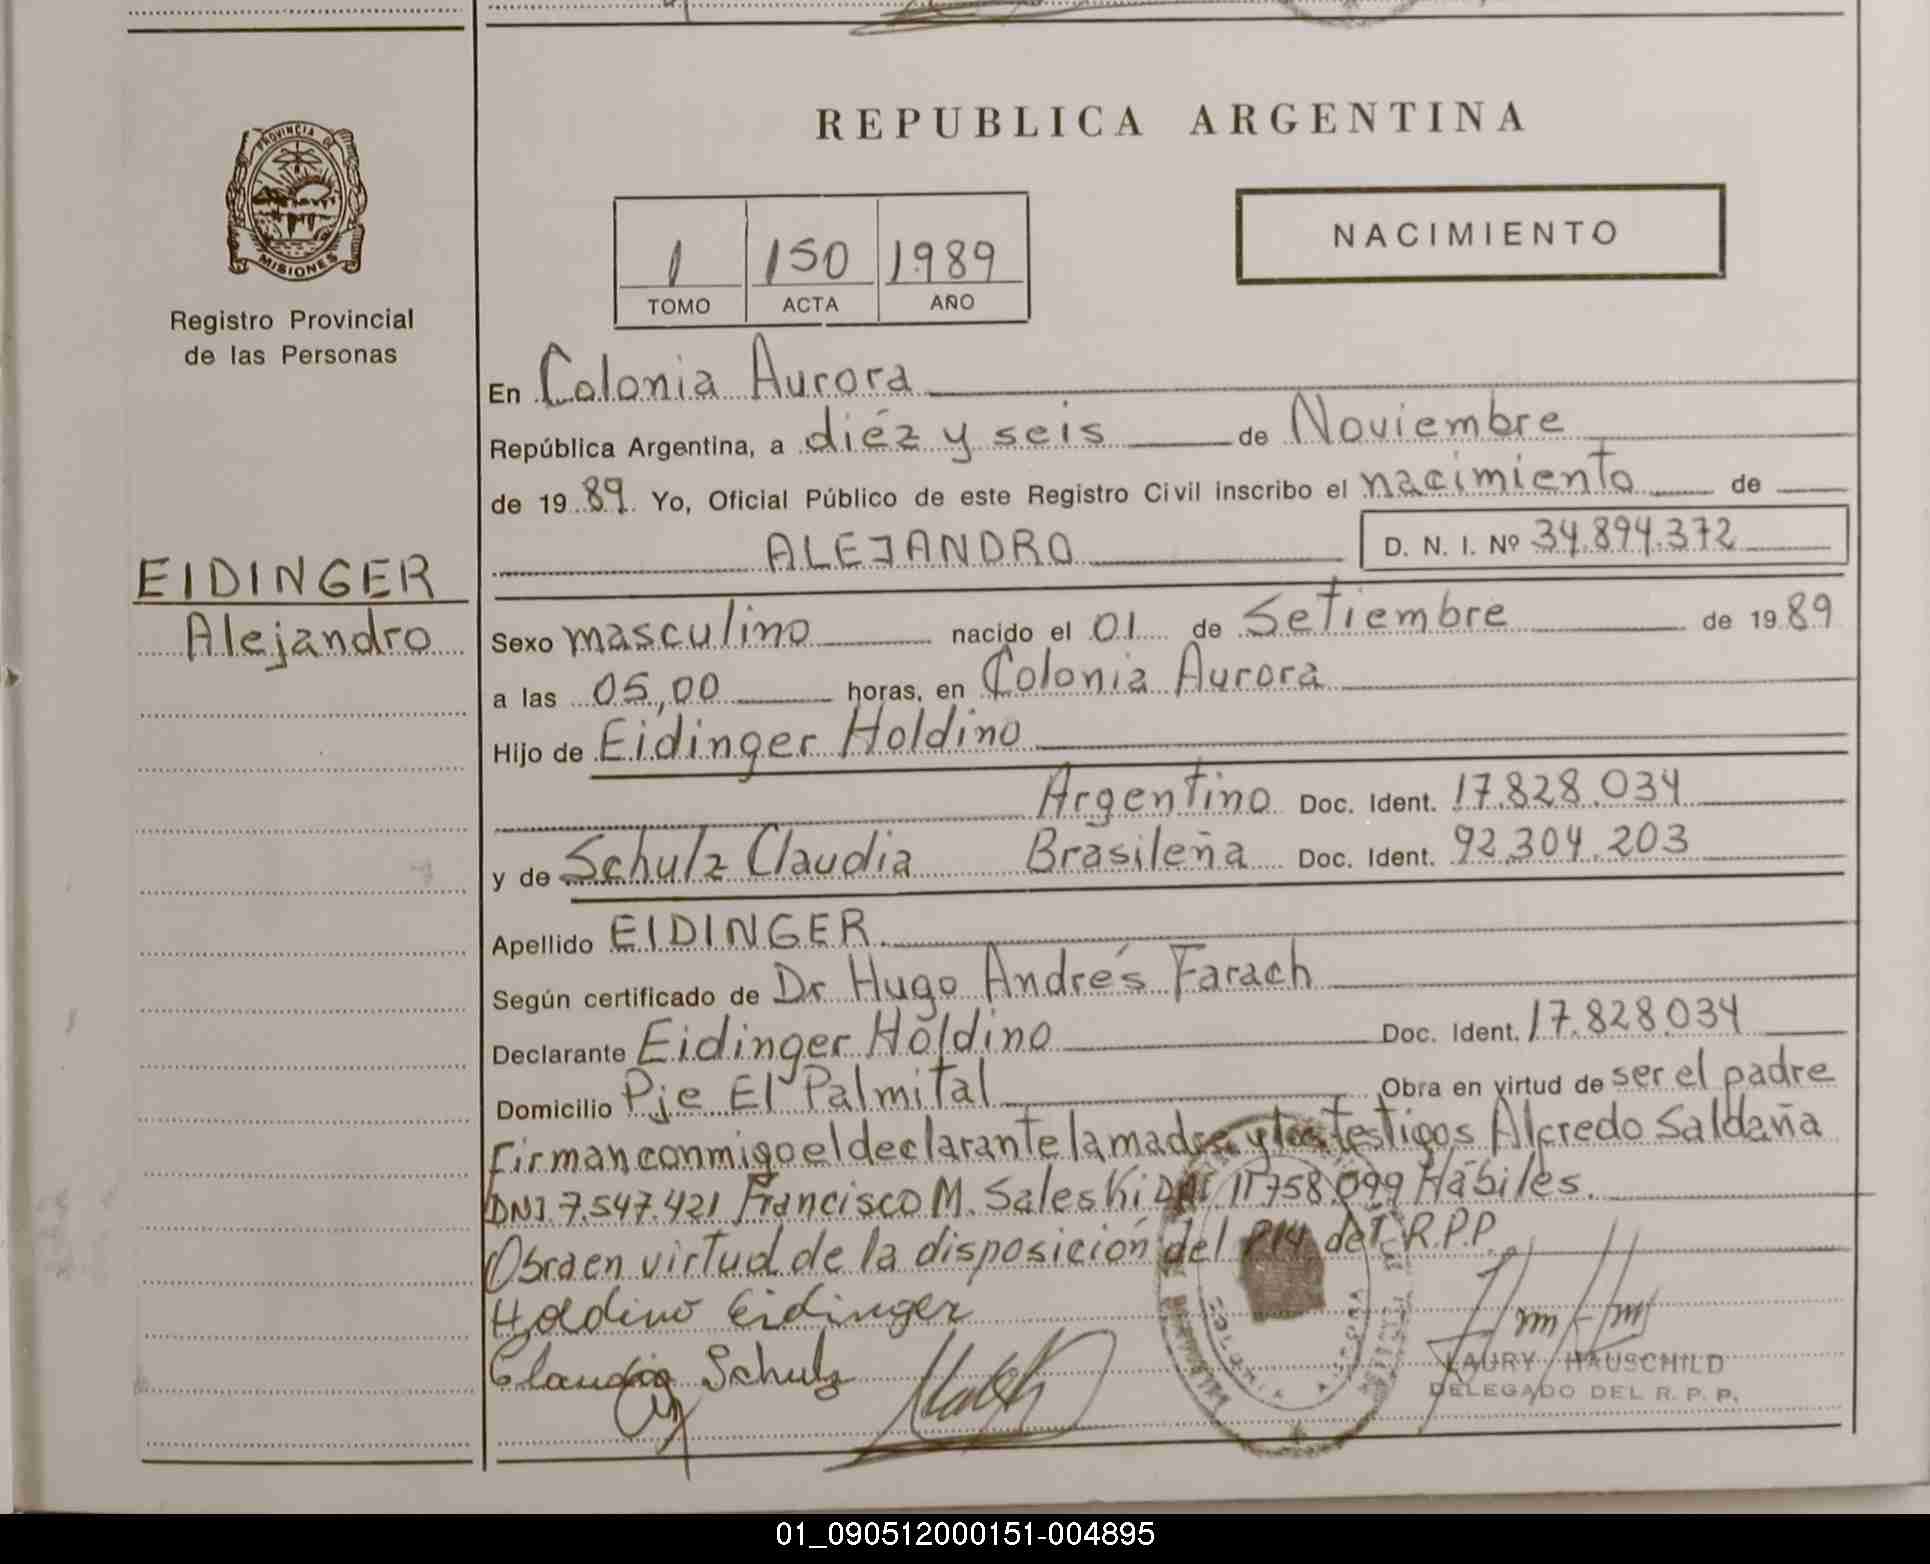 REPUBLICA ARGENTINA
PROVINCIA DE
MISIONES
Registro Provincial
de las Personas
1 150 1989
TOMO ACTA AÑO
NACIMIENTO
EIDINGER
Alejandro
En Colonia Aurora
República Argentina, a diéz y seis de Noviembre
de 1989 Yo, Oficial Público de este Registro Civil inscribo el nacimiento de
ALEJANDRO D. N. I. Nº 34.894.372
Sexo masculino nacido el 01 de Setiembre de 1989
a las 05,00 horas, en Colonia Aurora
Hijo de Eidinger Holdino
Argentino Doc. Ident. 17.828.034
y de Schulz Claudia Brasileña Doc. Ident. 92.304.203
Apellido EIDINGER
Según certificado de Dr Hugo Andrés Farach
Declarante Eidinger Holdino Doc. Ident. 17.828.034
Domicilio Pje El Palmital Obra en virtud de ser el padre
Firman conmigo el declarante la madre y los testigos Alfredo Saldaña
DNI 7.547.421 Francisco M. Saleski DNI 11758.099 Hábiles.
Obra en virtud de la disposición del 214 del R.P.P.
Holdino Eidinger
Claudia Schulz
LAURY HAUSCHILD
DELEGADO DEL R. P. P.
01_090512000151-004895